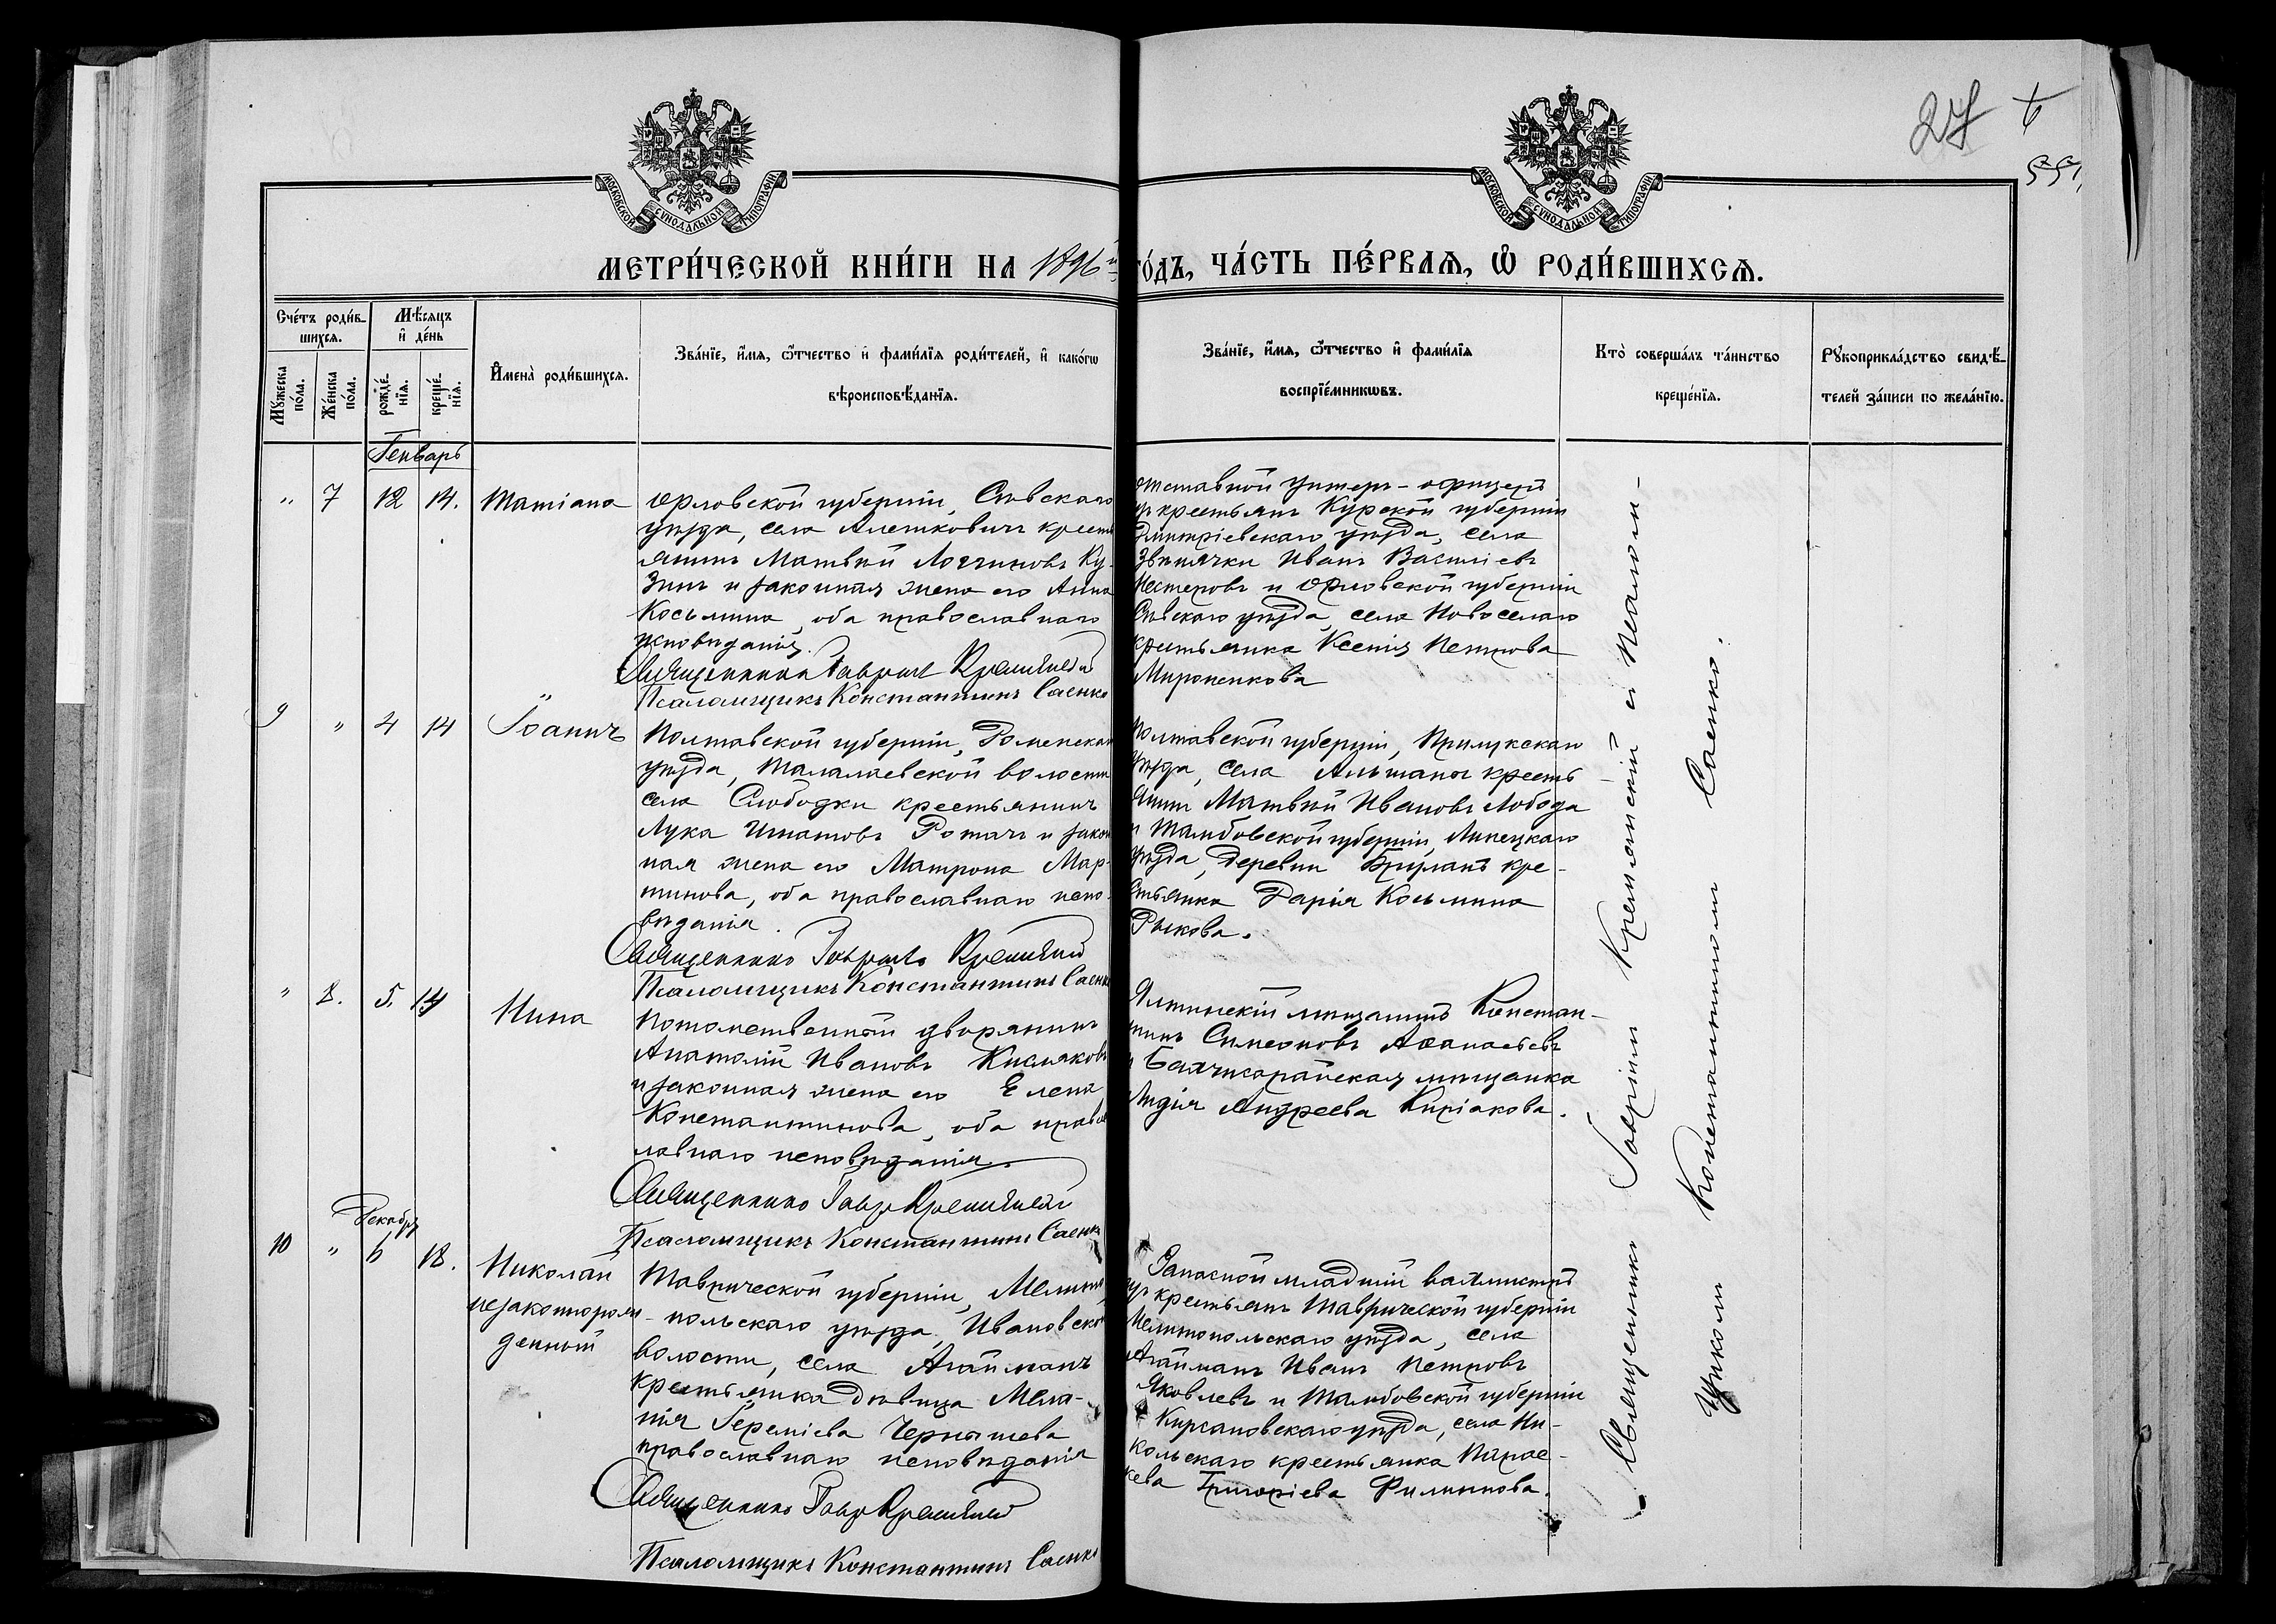 27
МОСКОВСКОЙ СѴНОДАЛЬНОЙ ТИПОГРАФІИ
МОСКОВСКОЙ СѴНОДАЛЬНОЙ ТИПОГРАФІИ
МЕТРИ́ЧЕСКОЙ КНИ́ГИ НА 1896й
ГО́ДЪ, ЧА́СТЬ ПЕ́РВАЯ, Ѡ РОДИ́ВШИХСЯ.
Сче́тъ роди́в-
шихся.
Мѣ́сяцъ
и҆ де́нь
Мꙋ́жеска
по́ла.
Же́нска
по́ла.
рожде́-
нїя.
креще́-
нїя.
И҆мена̀ роди́вшихся.
Зва́нїе, и҆́мя, ѻ҆́тчество и҆ фами́лїя роди́телей, и҆ како́гѡ
вѣроисповѣ́данїя.
Зва́нїе, и҆́мя, ѻ҆́тчество и҆ фами́лїя
воспрїе́мникѡвъ.
Кто̀ соверша́лъ та́инство
креще́нїя.
Рꙋкоприкла́дство свидѣ́-
телей за́писи по жела́нїю.
Генварь
" 7 12 14. Татiана
Орловской губернiи, Сѣвскаго
уѣзда, села Алешковичъ кресть
янинъ Матвѣй Логгиновъ Ку-
зинъ и законная жена его Анна
Косьмина, оба православнаго
исповѣданiя.
Священникъ Гаврiилъ Кремянскiй
Псаломщикъ Константинъ Саенко
отставной унтеръ-офицеръ
изъ крестьянъ Курской губернiи
Дмитрiевскаго уѣзда, села
Звѣнячки Иванъ Василiевъ
Нестеровъ и Орловской губернiи
Сѣвскаго уѣзда, села Новоселаго
крестьянка Ксенiя Петрова
Мироненкова
9 " 4 14 Iоаннъ
Полтавской губернiи, Роменскаго
уѣзда, Талалаевской волости
села Слободки крестьянинъ
Лука Игнатовъ Ротачъ и закон
ная жена его Матрона Мар-
тинова, оба православнаго испо-
вѣданiя.
Священникъ Гаврiилъ Кремянскiй
Псаломщикъ Константинъ Саенко
Полтавской губернiи, Прилукскаго
уѣзда, села Альшаны кресть
янинъ Матвѣй Ивановъ Лобода
и Тамбовской губернiи, Липецкаго
уѣзда, деревни кре-
стьянка Дарiя Косьмина
Рыкова.
" 8. 5. 14 Нина
Потомственный дворянинъ
Анатолiй Ивановъ Кисляковъ
и законная жена его Елена
Константинова, оба право
лавнаго исповѣданiя.
Священникъ Гаврiилъ Кремянскiй
Псаломщикъ Константинъ Саенко
Ялтинскiй мѣщанинъ Констан-
тинъ Симеоновъ Аѳанасьевъ
и Бахчисарайская мѣщанка
Лидiя Андреева Кирiакова.
Декабря
10 " 6 18. Николай
незаконнорож-
денный
Таврической губернiи, Мелито-
польскаго уѣзда, Ивановской
волости, села Агайманъ
крестьянка дѣвица Мела-
нiя Iеремiева Чернышева
православнаго исповѣданiя
Священникъ Гавр Кремянскiй
Псаломщикъ Константинъ Саенко
Запасной младшiй вахмистръ
изъ крестьянъ Таврической губернiи
Мелитопольскаго уѣзда, села
Агайманъ Иванъ Петровъ
Яковлевъ и Тамбовской губернiи
Кирсановскаго уѣзда, села Ни-
кольскаго крестьянка Парас-
кева Григорiева Филиппова.
Священникъ Гаврiилъ Кремянскiй и Псалом-
щикъ Константинъ Саенко.